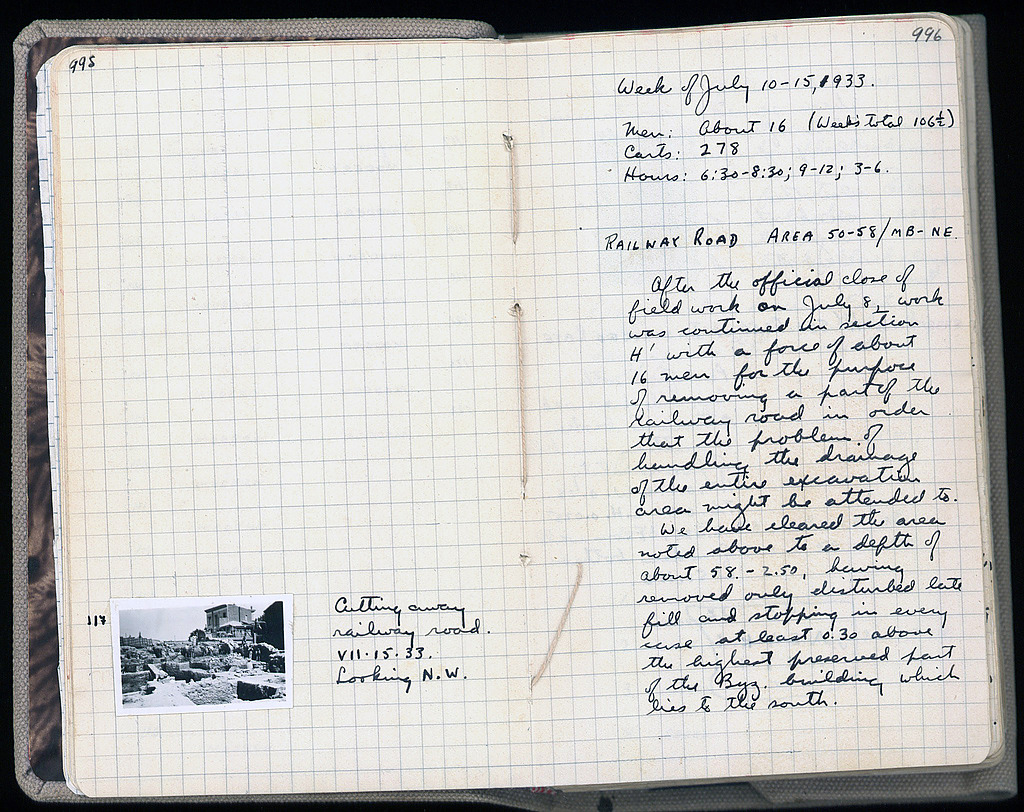 995
117
Cutting away
railway road.
VII.15.33.
Looking N.W.
996
Week of July 10-15, 1933.
Men: About 16 (Week's total 106½)
Carts: 278
Hours: 6:30-8:30; 9-12; 3-6.
RAILWAY ROAD AREA 50-58/MB-NE.
After the official close of
field work on July 8, work
was continued in section
H' with a force of about
16 men for the purpose
of removing a part of the
railway road in order
that the problem of
handling the drainage
of the entire excavation
area might be attended to.
We have cleared the area
noted above to a depth of
about 58.-2.50, having
removed only disturbed late
fill and stopping in every
case at least 0.30 above
the highest preserved part
of the Byz. building which
lies to the south.